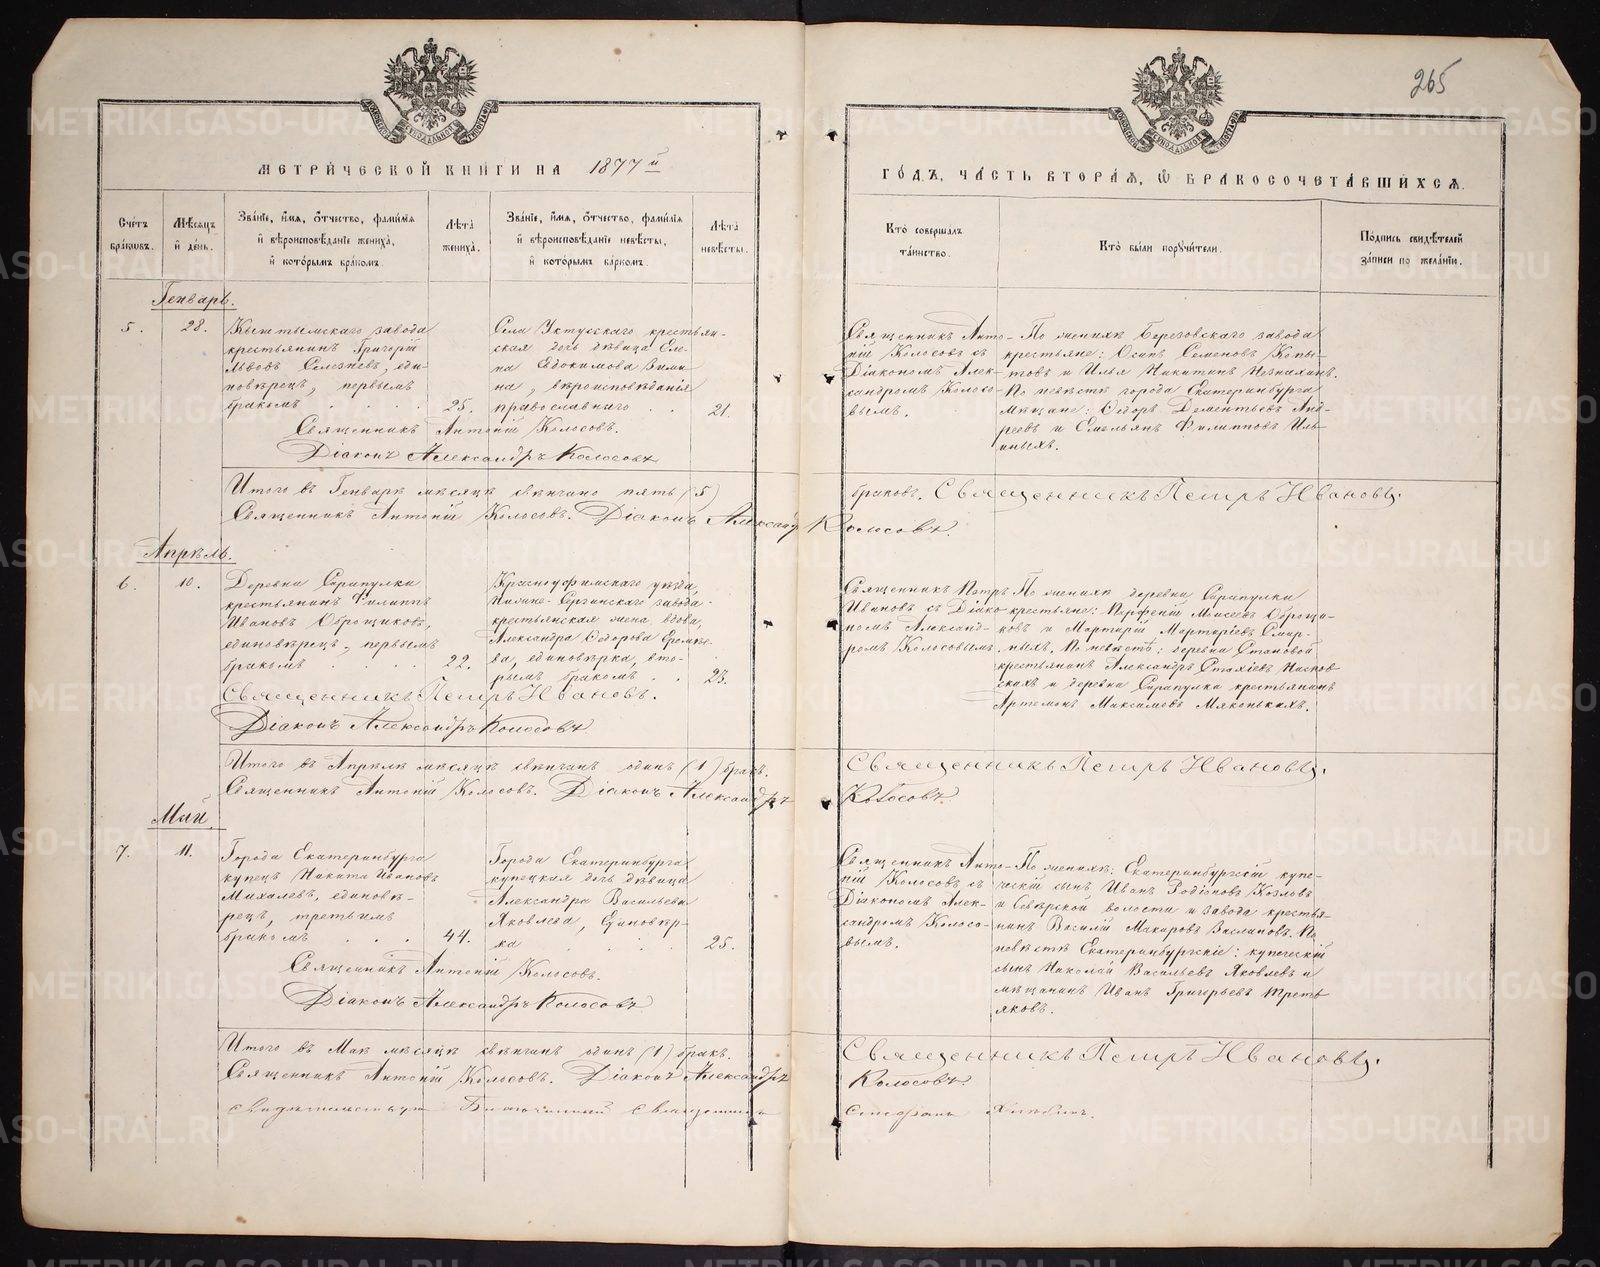 265
МЕТРИЧЕСКОЙ КНИГИ НА 1877й
ГОДЪ, ЧАСТЬ ВТОРАЯ, Ѡ БРАКОСОЧЕТАВШИХСЯ.
Счетъ браковъ.
Мѣсяцъ и день.
Званіе, имя, отчество, фамилія
и вѣроисповѣданіе жениха,
и которымъ бракомъ.
Лѣта жениха.
Званіе, имя, отчество, фамилія
и вѣроисповѣданіе невѣсты,
и которымъ баркомъ.
Лѣта невѣсты.
Кто совершалъ
таинство.
Кто были поручители.
Подпись свидѣтелей
записи по желанію.
Генварь.
5.
28.
Кыштымскаго завода
крестьянинъ Григорій
Львовъ Селезневъ, еди-
новѣрецъ, первымъ
бракомъ
25.
Села Уктусскаго крестьян-
ская дочь дѣвица Еле-
на Евдокимова Зими-
на, вѣроисповѣданія
православнаго
21.
Священникъ Анто-
ній Колосовъ съ
Діакономъ Алек-
сандромъ Колосо-
вымъ.
По женихѣ Березовскаго завода
крестьяне: Осипъ Семеновъ Копы-
товъ и Илья Никитинъ Незнахинъ.
По невѣстѣ города Екатеринбурга
мѣщане: Ѳедоръ Дементьевъ Анд-
реевъ и Емельянъ Филипповъ Иль-
иныхъ.
Священникъ Антоній Колосовъ.
Діаконъ Александръ Колосовъ
Итого въ Генварѣ мѣсяцѣ вѣнчано пять (5) браковъ. Священникъ Петръ Ивановъ.
Священникъ Антоній Колосовъ. Діаконъ Александръ Колосовъ.
Апрѣль.
6.
10.
Деревни Сарапулки
крестьянинъ Филиппъ
Ивановъ Оброщиковъ,
единовѣрецъ, первымъ
бракомъ
22.
Красноуфимскаго уѣзда,
Нижне-Сергинскаго завода
крестьянская жена вдова
Александра Ѳедорова Еремѣе-
ва, единовѣрка, вто-
рымъ бракомъ
23.
Священникъ Петръ
Ивановъ съ Діако-
номъ Александ-
ромъ Колосовымъ.
По женихѣ деревни Сарапулки
крестьяне: Парфеній Моисеевъ Оброщи-
ковъ и Мартирій Мартиріевъ Смир-
ныхъ. По невѣстѣ: деревни Становой
крестьянинъ Александръ Стахіевъ
и деревни Сарапулки крестьянинъ
Артемонъ Максимовъ Мяконькихъ.
Священникъ Петръ Ивановъ.
Діаконъ Александръ Колосовъ
Итого въ Апрѣлѣ мѣсяцѣ вѣнчанъ одинъ (1) бракъ. Священникъ Петръ Ивановъ.
Священникъ Антоній Колосовъ. Діаконъ Александръ Колосовъ
Май.
7.
11.
Города Екатеринбурга
купецъ Никита Ивановъ
Михалевъ, единовѣ-
рецъ, третьимъ
бракомъ
44.
Города Екатеринбурга
купецкая дочь дѣвица
Александра Васильева
Яковлева, Единовѣр-
ка
25.
Священникъ Анто-
ній Колосовъ съ
Діакономъ Алек-
сандромъ Колосо-
вымъ.
По женихѣ: Екатеринбургскій купе-
ческій сынъ Иванъ Родіоновъ Козловъ
и Сѣверской волости и завода крестья-
нинъ Василій Макаровъ Заслановъ. По
невѣстѣ Екатеринбургскіе: купеческій
сынъ Николай Васильевъ Яковлевъ и
мѣщанинъ Иванъ Григорьевъ Треть-
яковъ.
Священникъ Антоній Колосовъ.
Діаконъ Александръ Колосовъ
Итого въ Маѣ мѣсяцѣ вѣнчанъ одинъ (1) бракъ. Священникъ Петръ Ивановъ.
Священникъ Антоній Колосовъ. Діаконъ Александръ Колосовъ.
Свидѣтельствуетъ Благочинный Священникъ Стефанъ Хлѣбинъ.
METRIKI.GASO-URAL.RU